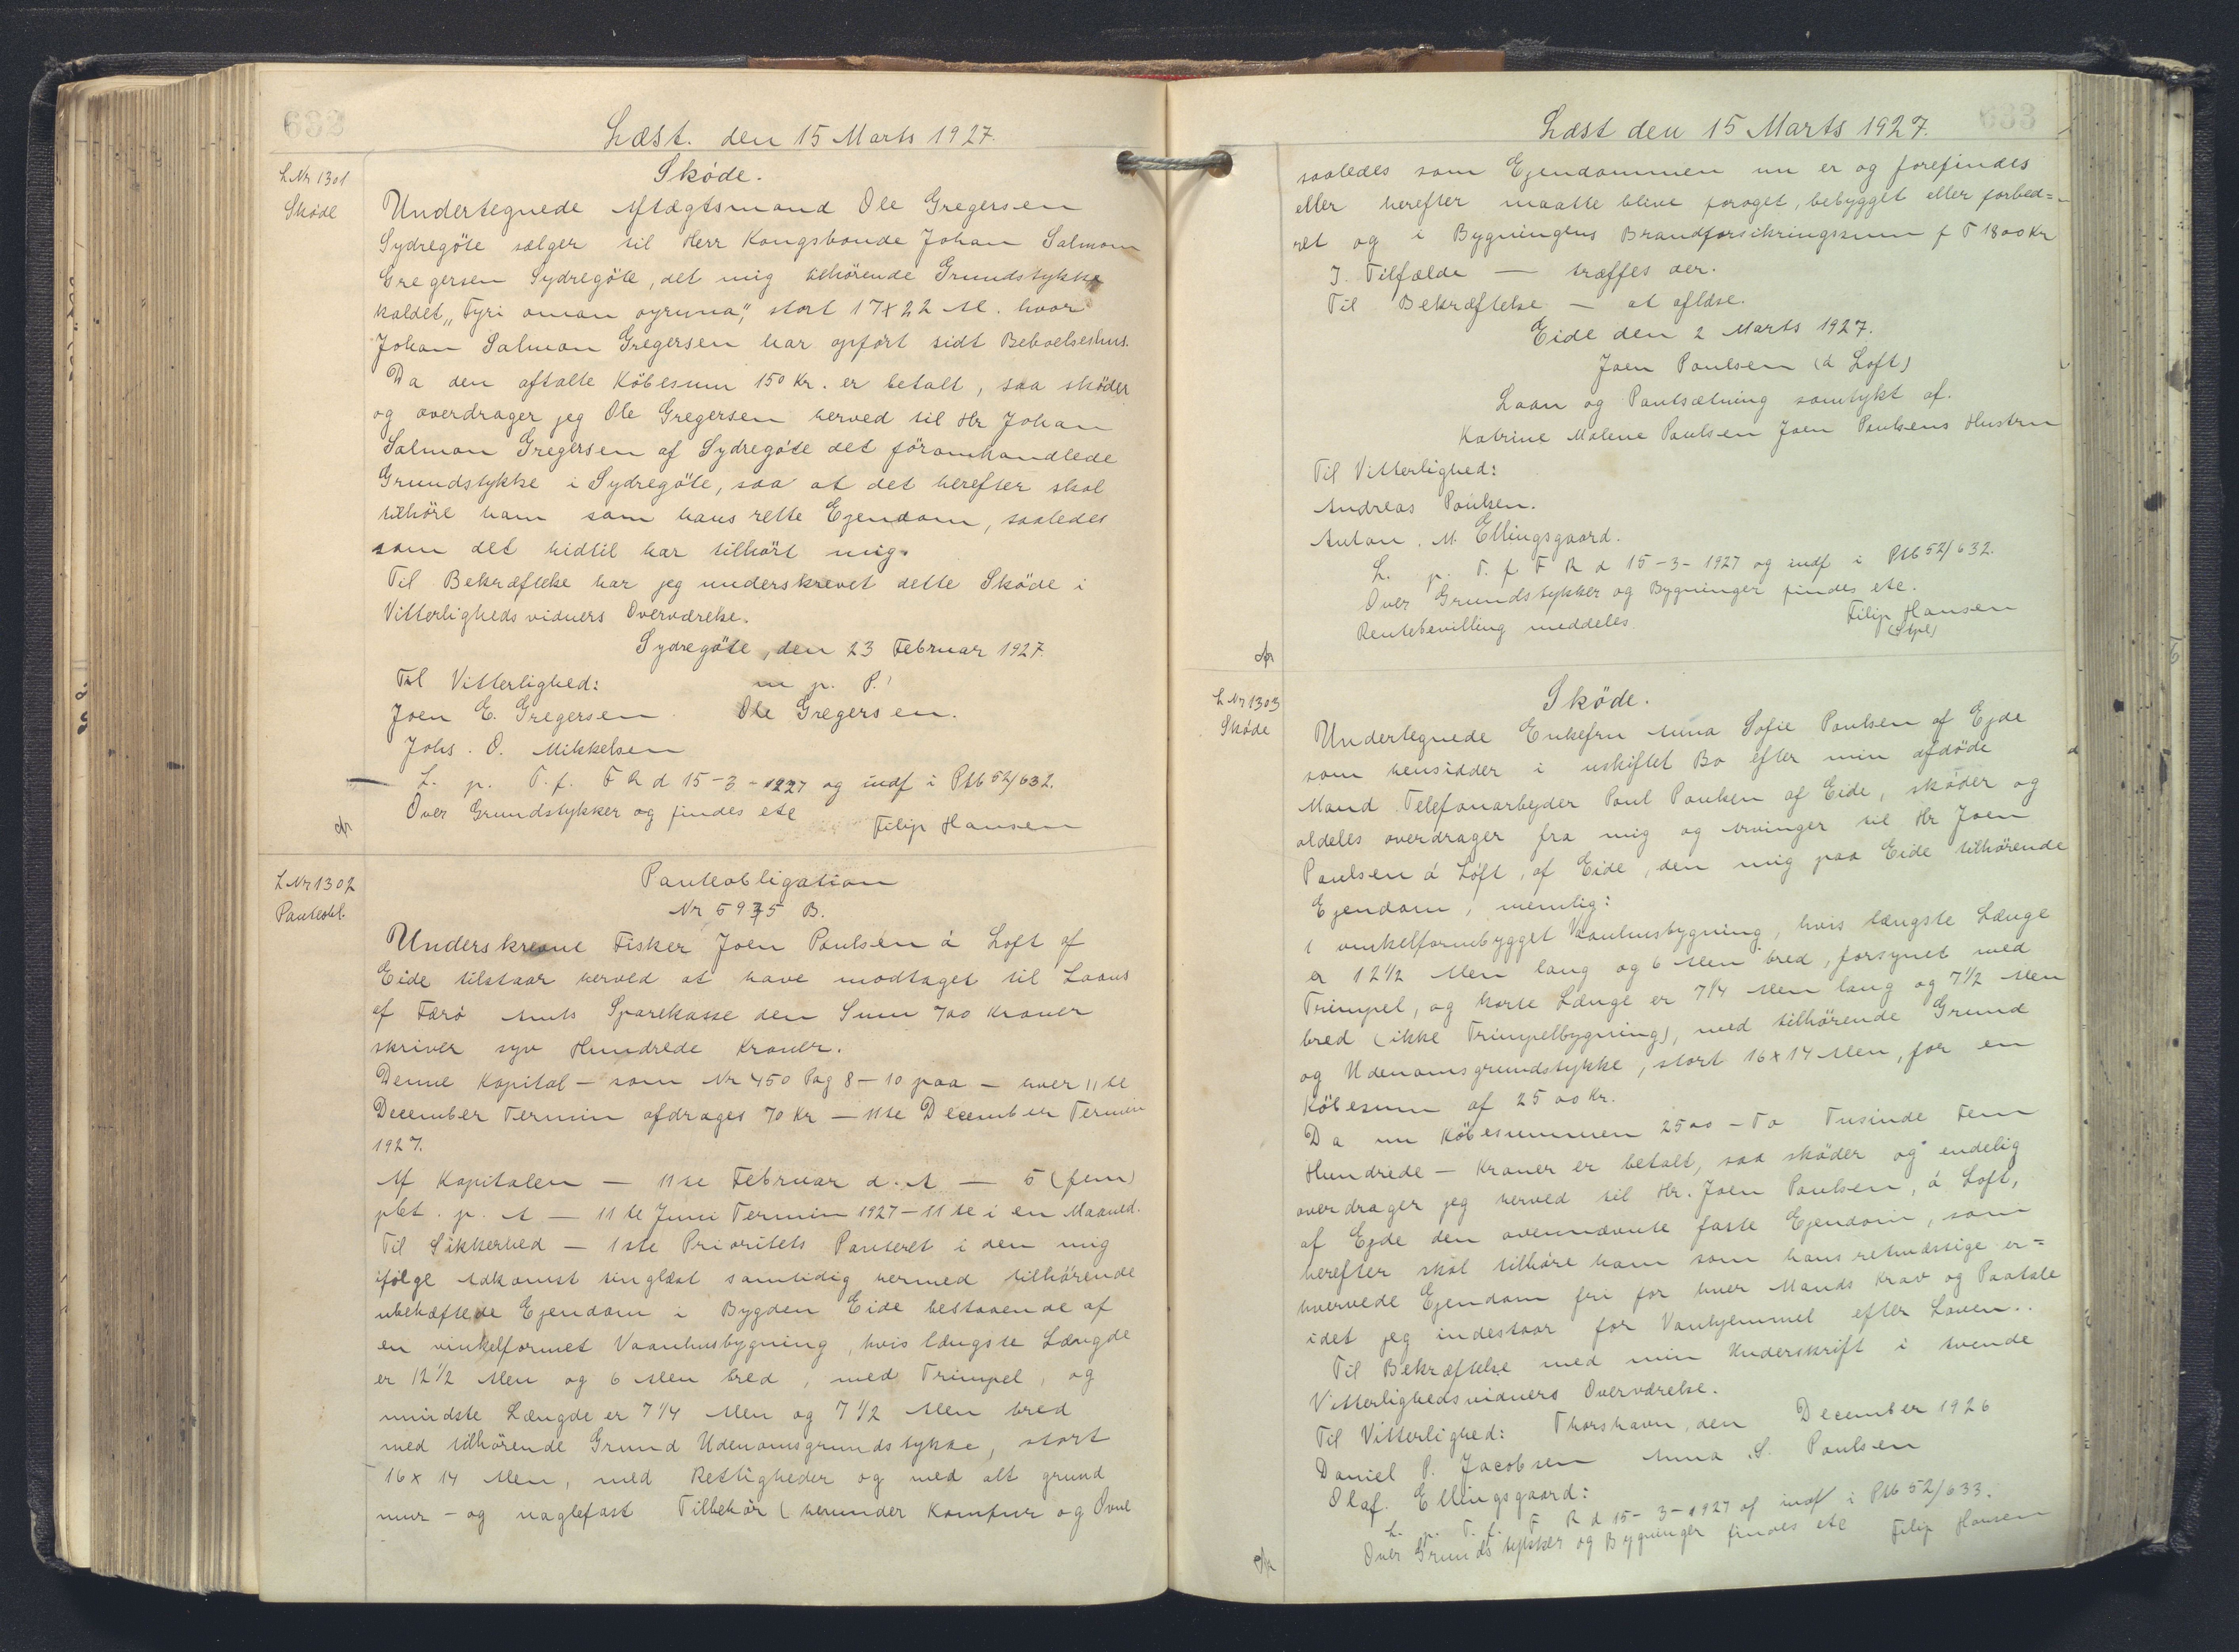 632
Læst. den 15 Marts 1927.
L Nr 1301
Skøde
Skøde.
Undertegnede Aftægtsmand Ole Gregersen
Sydregöte sælger til Herr Kongsbonde Johan Salmon
Gregersen Sydregöte, det mig tilhörende Grundstykke
kaldet „Fyri oman oyruna", stort 17 x 22 Al. hvor
Johan Salmon Gregersen har opfört sidt Beboelseshus.
Da den aftalte Köbesum 150 Kr. er betalt, saa sköder
og overdrager jeg Ole Gregersen herved til Hr Johan
Salmon Gregersen af Sydregöte det föromhandlede
Grundstykke i Sydregöte, saa at det herefter skal
tilhöre ham som hans rette Ejendom, saaledes
som det hidtil har tilhört mig.
Til Bekræftelse har jeg underskrevet dette Sköde i
Vitterlighedsvidners Overværelse.
Sydregöte, den 23 Februar 1927.
Til Vitterlighed:
m. p. P.
Joen E. Gregersen Ole Gregersen.
Johs. O. Mikkelsen
L. p. T. f. F R d 15-3-1927 og indf i Ptb 52/632.
Over Grundstykker og findes etc
Filip Hansen
L Nr 1302
Panteobl.
Panteobligation
Nr 5935 B.
Underskrevne Fisker Joen Poulsen á Loft af
Eide tilstaar herved at have modtaget til Laans
af Færö Amts Sparekasse den Sum 700 Kroner
skriver syv Hundrede Kroner.
Denne Kapital – som Nr 450 Pag 8-10 paa – hver 11te
December Termin afdrages 70 Kr – 11te December Termin
1927.
Af Kapitalen – 11te Februar d. A – 5 (fem)
pCt. p. A – 11te Juni Termin 1927 – 11te i en Maaned.
Til Sikkerhed – 1ste Prioritets Panteret i den mig
ifølge Adkomst tinglæst samtidig hermed tilhörende
ubehæftede Ejendom i Bygden Eide bestaaende af
en vinkelformet Vaanhusbygning, hvis længste Længde
er 12½ Alen og 6 Alen bred, med Trimpel, og
mindste Længde er 7¼ Alen og 7½ Alen bred
med tilhörende Grund Udenomsgrundstykke, stort
16 x 14 Alen, med Rettigheder og med alt grund
mur – og naglefast Tilbehör (herunder Komfur og Ovne
633
Læst den 15 Marts 1927.
saaledes som Ejendommen nu er og forefindes
eller herefter maatte blive foröget, bebygget eller forbed=
ret og i Bygningens Brandforsikringssum p T 1800 Kr
I Tilfælde – træffes der.
Til Bekræftelse – at aflæse.
Eide den 2 Marts 1927.
Joen Poulsen (á Loft)
Laan og Pantsætning samtykt af.
Katrine Malene Poulsen Joen Poulsens Hustru
Til Vitterlighed:
Andreas Poulsen.
Anton. M. Ellingsgaard.
L. p. T. f F R d 15-3-1927 og indf i Ptb 52/632.
Over Grundstykker og Bygninger findes etc.
Rentebevilling meddeles.
Filip Hansen
(Stpl)
L Nr 1303
Skøde
Skøde.
Undertegnede Enkefru Anna Sofie Poulsen af Ejde
som hensidder i uskiftet Bo efter min afdöde
Mand Telefonarbejder Poul Poulsen af Eide, sköder og
aldeles overdrager fra mig og Arvinger til Hr Joen
Poulsen á Loft, af Eide, den mig paa Eide tilhörende
Ejendom, nemlig:
1 vinkelformbygget Vaanhusbygning, hvis længste Længe
er 12½ Alen lang og 6 Alen bred, forsynet med
Trimpel, og korte Længe er 7¼ Alen lang og 7½ Alen
bred (ikke Trimpelbygning), med tilhörende Grund
og Udenomsgrundstykke, stort 16 x 14 Alen, for en
Köbesum af 2500 Kr.
Da nu Köbesummen 2500 – To Tusinde Fem
Hundrede – Kroner er betalt, saa sköder og endelig
overdrager jeg herved til Hr. Joen Poulsen, á Loft,
af Ejde den ovennævnte faste Ejendom, som
herefter skal tilhöre ham som hans retmæssige er=
hvervede Ejendom fri for hver Mands Krav og Paatale
idet jeg indestaar for Vanhjemmel efter Loven.
Til Bekræftelse med min Underskrift i tvende
Vitterlighedsvidners Overværelse.
Til Vitterlighed: Thorshavn, den December 1926
Daniel P. Jacobsen Anna S. Poulsen
Olaf. Ellingsgaard:
L. p. T. f. F R d 15-3-1927 og indf i Ptb 52/633.
Over Grundstykker og Bygninger findes etc Filip Hansen